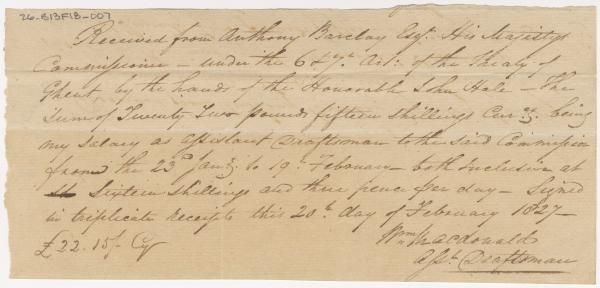 26-B13F1B-007
Received from Anthony Barclay Esqr. His Majestys
Commissioner – under the 6 & 7th. Art: of the Treaty of
Ghent by the hands of the Honorable John Hale – The
Sum of Twenty Two pounds fifteen shillings Curcy. being
my Salary as assistant Draftsman to the said Commission
from the 23d Jany. to 19th. February – both inclusive at
Sixteen shillings and three pence per day – Signed
in triplicate receipts this 20th. day of February 1827 –
£22.15/- Cy
Wm. Macdonald
Asst. Draftsman